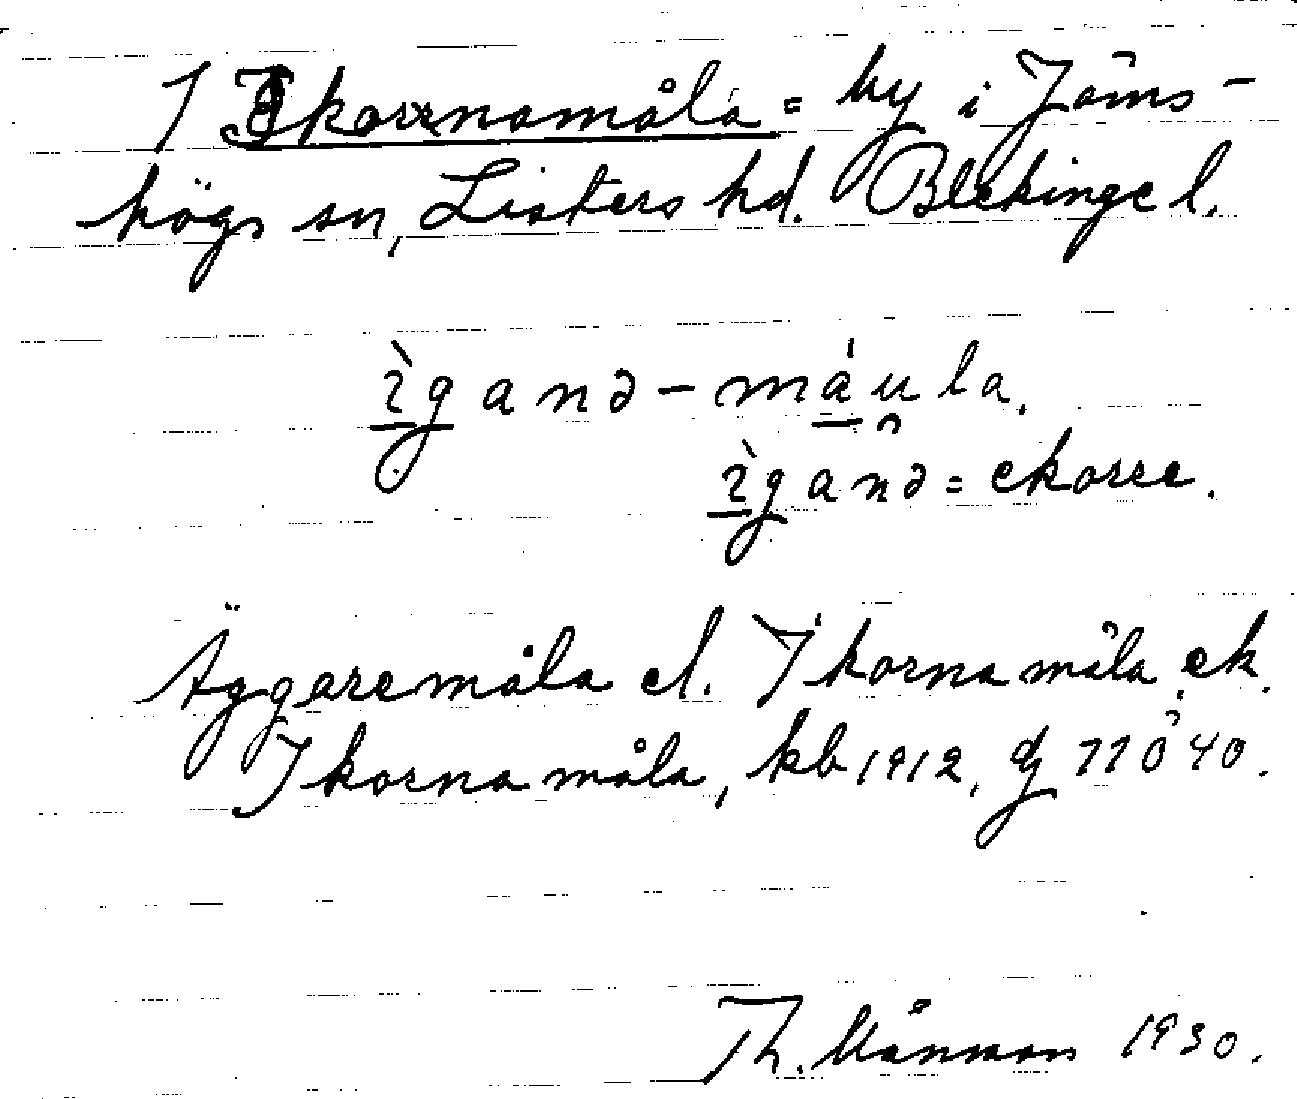 I Ikorrnamåla = by i Jäms-
högs sn, Listers hd. Blekinge l.
ìganə - máu̯la.
ìganə = ekorre.
Äggaremåla el. Ikornamåla, ek.
Ikornamåla, kb 1912, 71Ö40.
Th. Månsson 1930.